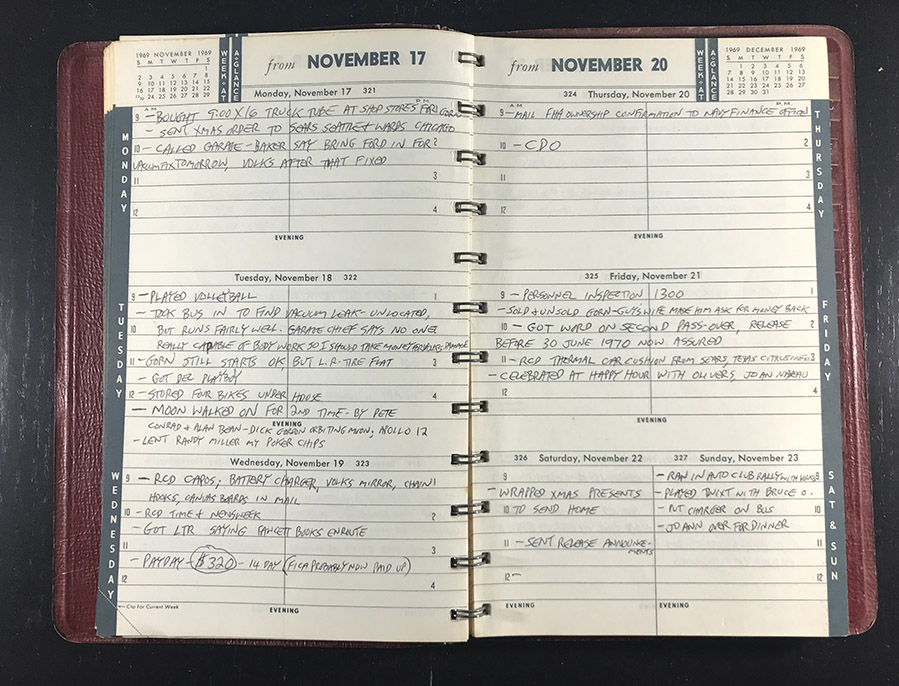 1969 NOVEMBER 1969
S M T W T F S
1
2 3 4 5 6 7 8
9 10 11 12 13 14 15
16 17 18 19 20 21 22
WEEK-AT A-GLANCE
from NOVEMBER 17
MONDAY
Monday, November 17 321
AM P.M.
9 - BOUGHT 9:00 X 16 TRUCK TUBE AT SHOP STORES FOR GORN
- SENT XMAS ORDER TO SEARS SEATTLE & WARDS CHICAGO
10 - CALLED GARAGE - BAKER SAY BRING FORD IN FOR 2
VACUUM FIX TOMORROW, VOLKS AFTER THAT FIXED
11 3
12 4
EVENING
TUESDAY
Tuesday, November 18 322
9 - PLAYED VOLLEYBALL 1
- TOOK BUS IN TO FIND VACUUM LEAK - UNLOCATED,
10 BUT RUNS FAIRLY WELL. GARAGE CHIEF SAYS NO ONE
REALLY CAPABLE OF BODY WORK SO I SHOULD TAKE MONEY FOR VOLKS DAMAGE
11 - GORN STILL STARTS OK, BUT L.R. TIRE FLAT 3
- GOT DEC PLAYBOY
12 - STORED FOUR BIKES UNDER HOUSE 4
- MOON WALKED ON FOR 2ND TIME - BY PETE
CONRAD & ALAN BEAN - DICK GORDON ORBITING MOON; APOLLO 12
EVENING
- LENT RANDY MILLER MY POKER CHIPS
WEDNESDAY
Wednesday, November 19 323
9 - RCD CAPOS, BATTERY CHARGER, VOLKS MIRROR, CHAIN 1
HOOKS, CANVAS BEARDS IN MAIL
10 - RCD TIME & NEWSWEEK 2
- GOT LTR SAYING FAWCETT BOOKS ENROUTE
11 3
- PAYDAY - $320 - 14 DAY (FICA PROBABLY NOW PAID UP)
12 4
← Clip for Current Week
EVENING
from NOVEMBER 20
WEEK-AT A-GLANCE
1969 DECEMBER 1969
S M T W T F S
1 2 3 4 5 6
7 8 9 10 11 12 13
14 15 16 17 18 19 20
21 22 23 24 25 26 27
28 29 30 31
THURSDAY
324 Thursday, November 20
AM P.M.
9 - MAIL FHA OWNERSHIP CONFIRMATION TO NAVY FINANCE OFFICE
10 - CDO 2
11 3
12 4
EVENING
FRIDAY
325 Friday, November 21
9 - PERSONNEL INSPECTION 1300 1
- SOLD & UNSOLD GORN - GUYS WIFE MADE HIM ASK FOR MONEY BACK
10 - GOT WORD ON SECOND PASS-OVER, RELEASE 2
BEFORE 30 JUNE 1970 NOW ASSURED
11 - RCD THERMAL CAR CUSHION FROM SEARS, TEXAS CITRUS INFO. 3
- CELEBRATED AT HAPPY HOUR WITH OLIVERS, JO AN
12 4
EVENING
SAT & SUN
326 Saturday, November 22
9
- WRAPPED XMAS PRESENTS
10 TO SEND HOME
11 - SENT RELEASE ANNOUNCEMENTS
12 -
EVENING
327 Sunday, November 23
- RAN IN AUTO CLUB RALLY WITH VOLKS 9
- PLAYED TWIXT WITH BRUCE O.
- PUT CHARGER ON BUS 10
- JO ANN OVER FOR DINNER
11
12
EVENING